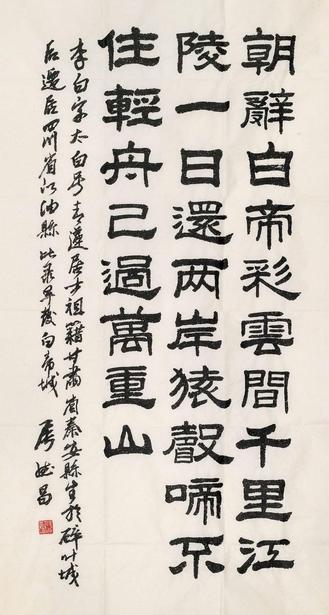 朝辭白帝彩雲間千里江
陵一日還两岸猿聲啼不
住輕舟已過萬重山
李白字太白号青蓮居士祖籍甘肅省秦安縣生於碎叶城
后遷居四川省江油縣此录早發白帝城
昌